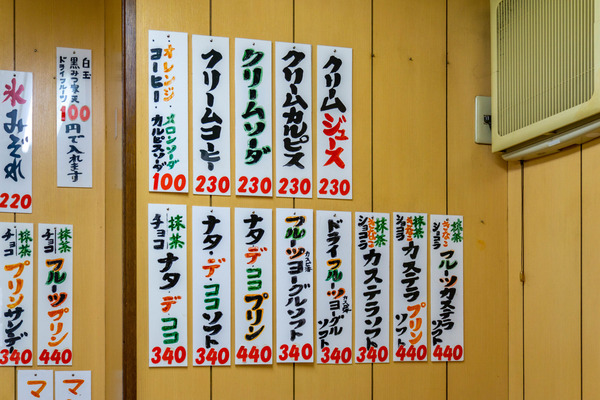 氷みぞれ
220
白玉
黒みつ
ドライフルーツ
100円で入れます
オレンジ
コーヒー
メロンソーダ
カルピスソーダ
100
クリームコーヒー
230
クリームソーダ
230
クリームカルピス
230
クリームジュース
230
抹茶
チョコ
プリンサンデー
340
抹茶
チョコ
フルーツプリン
440
抹茶
チョコ
ナタデココ
340
ナタデココソフト
340
ナタデココプリン
440
フルーツヨーグルソフト
340
ドライフルーツヨーグルソフト
340
抹茶
きなこ
ショコラ
カステラソフト
340
抹茶
きなこ
ショコラ
カステラプリンソフト
440
抹茶
きなこ
ショコラ
フルーツカステラソフト
440
マ
マ